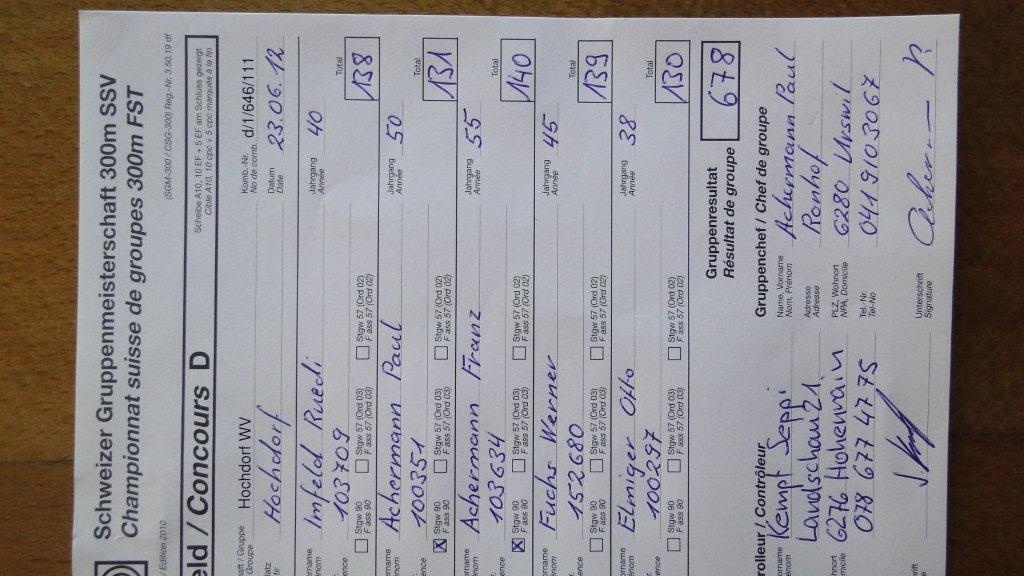 Schweizer Gruppenmeisterschaft 300m SSV
Championnat suisse de groupes 300m FST
/ Edition 2010
(SGM-300 / CSG-300) Reg.-Nr. 3.50.19 df
eld / Concours D
Scheibe A10, 10 EF + 5 EF am Schluss gezeigt
Cible A10, 10 cpc + 5 cpc marqués à la fin
haft / Gruppe
Groupe
Hochdorf WV
Komb.-Nr.
No de comb.
d/1/646/111
atz
Hochdorf
Datum
Date
23.06.12
orname
énom
Imfeld Ruedi
Jahrgang
Année
40
Total
138
ence
103709
Stgw 90
F ass 90
Stgw 57 (Ord 03)
F ass 57 (Ord 03)
Stgw 57 (Ord 02)
F ass 57 (Ord 02)
orname
énom
Achermann Paul
Jahrgang
Année
50
Total
131
ence
100351
Stgw 90
F ass 90
Stgw 57 (Ord 03)
F ass 57 (Ord 03)
Stgw 57 (Ord 02)
F ass 57 (Ord 02)
orname
énom
Achermann Franz
Jahrgang
Année
55
Total
140
ence
103634
Stgw 90
F ass 90
Stgw 57 (Ord 03)
F ass 57 (Ord 03)
Stgw 57 (Ord 02)
F ass 57 (Ord 02)
orname
énom
Fuchs Werner
Jahrgang
Année
45
Total
139
ence
152680
Stgw 90
F ass 90
Stgw 57 (Ord 03)
F ass 57 (Ord 03)
Stgw 57 (Ord 02)
F ass 57 (Ord 02)
orname
énom
Elmiger Otto
Jahrgang
Année
38
Total
130
ence
100297
Stgw 90
F ass 90
Stgw 57 (Ord 03)
F ass 57 (Ord 03)
Stgw 57 (Ord 02)
F ass 57 (Ord 02)
Gruppenresultat
Résultat de groupe
678
rolleur / Contrôleur
orname
énom
Kempf Seppi
Landschau 21
hnort
micile
6276 Hohenrain
078 677 47 75
hrift
Gruppenchef / Chef de groupe
Name, Vorname
Nom, Prénom
Achermann Paul
Adresse
Adresse
PLZ, Wohnort
NPA, Domicile
6280 Urswil
Tel.-Nr.
Tel-No
041 910 30 67
Unterschrift
Signature